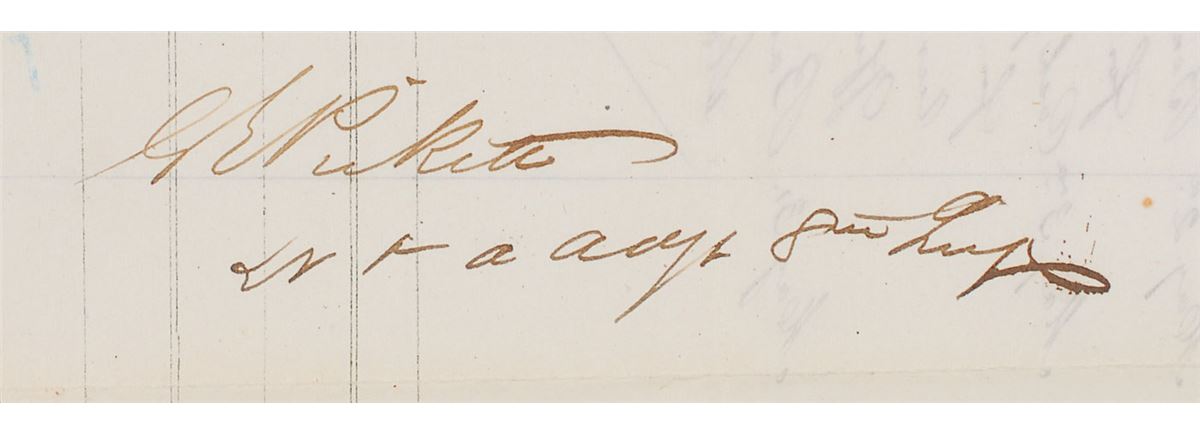 G E Pickett
Lt & a adjt 8th Infy